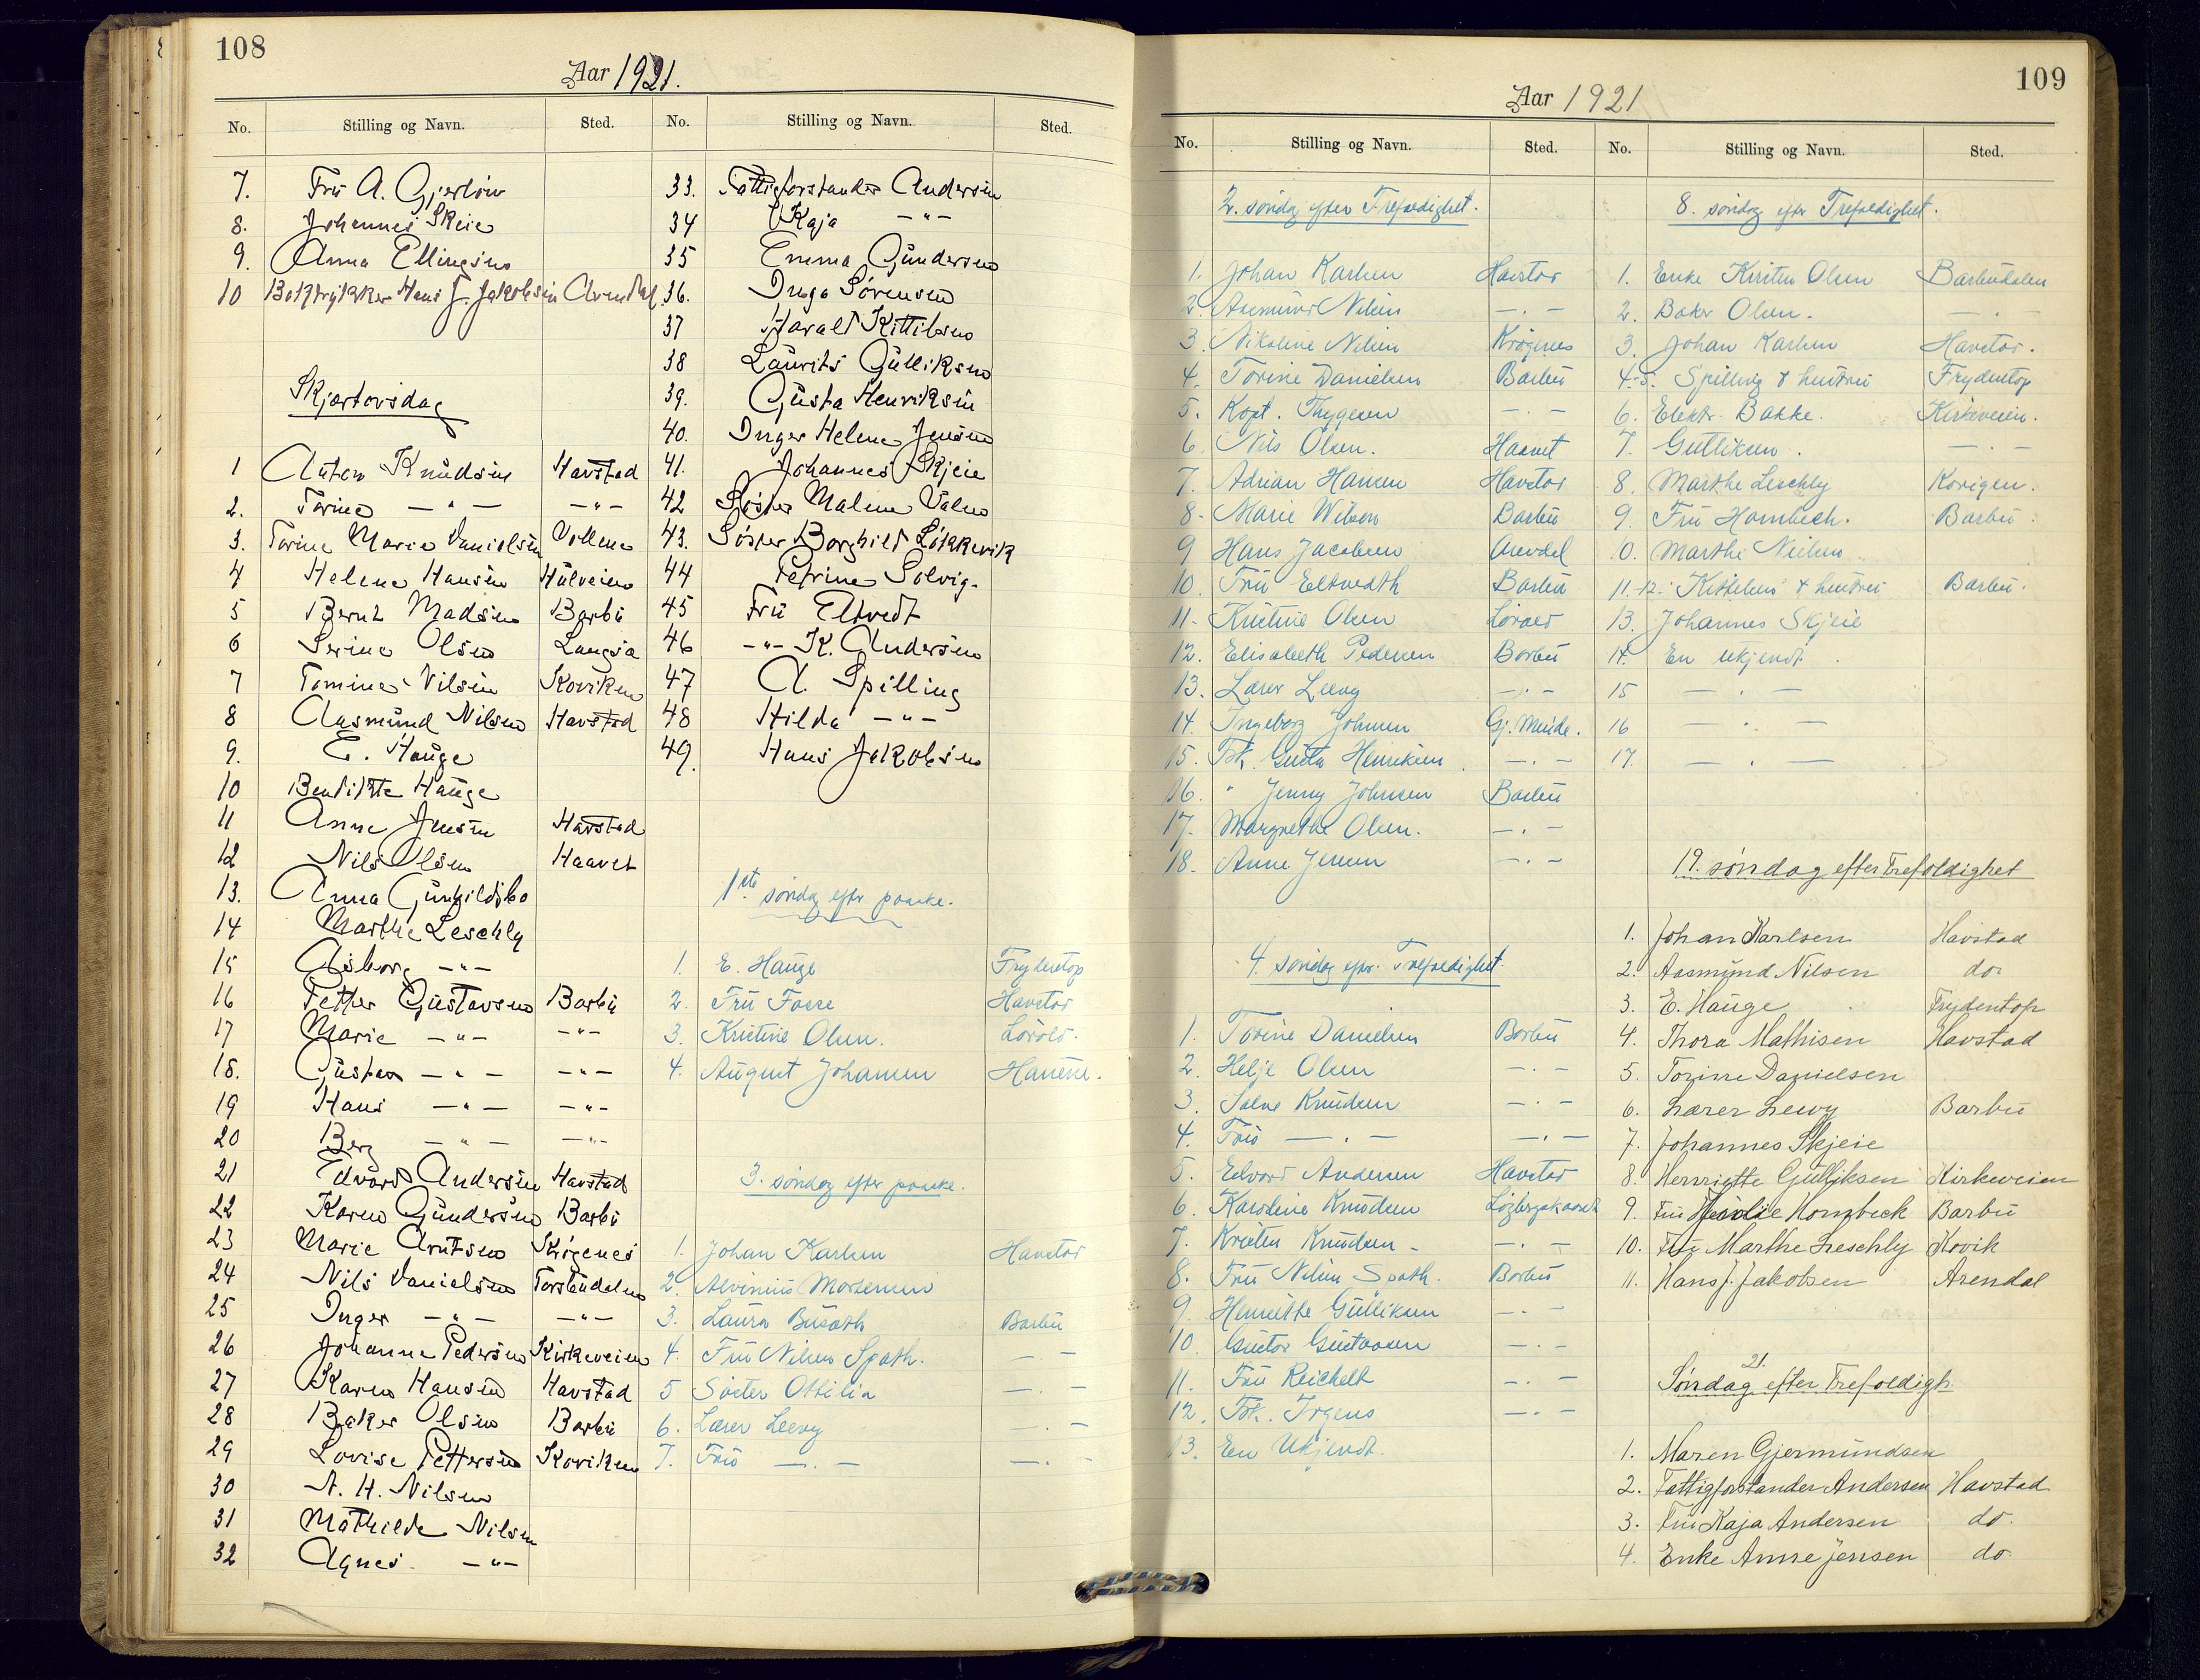 108
Aar 1921.
No. Stilling og Navn. Sted. No. Stilling og Navn. Sted.
7. Frü A. Gjerløw
8. Johannes Skeie
9. Anna Ellingsen
10 Boktrykker Hans J. Jakobsen Arendal
Skjærtorsdag
1 Anton Knudsen Havstad
2. Torine — " — — " —
3. Torine Marie Danielsen Vollene
4 Helene Hansen Hülveien
5 Bernt Madsen Barbü
6 Serine Olsen Langsæ
7 Tomine Nilsen Koviken
8 Aasmünd Nilsen Havstad
9. E. Hauge
10 Bendikte Hauge
11 Anne Jensen Havstad
12 Nils Olsen Haavet
13. Anna Günhildsbo
14 Marthe Leschly
15 Åsborg — " —
16 Petter Gustavsen Barbü
17 Marie — " — — " —
18. Güstav — " — — " —
19 Hans — " — — " —
20 Berg — " — — " —
21 Edvard Andersen Havstad
22 Karen Gündersen Barbü
23 Marie Arntsen Krøgenes
24 Nils Danielsen Torsbudalen
25 Inger — " — — " —
26 Johanne Pedersen Kirkeveien
27 Karen Hansen Havstad
28 Baker Olsen Barbü
29 Lovise Pettersen Koviken
30 A. H. Nilsen
31 Mathilde Nilsen
32 Agnes — " —
33. Fattigforstander Andersen
34 Kaja — " —
35 Emma Gündersen
36. Inga Sørensen
37 Harald Kittilsen
38 Laurits Gülliksen
39. Güsta Henriksen
40. Inger Helene Jensen
41. Johannes Skjeie
42 Søster Malene Valen
43. Søster Borghild Løkkevik
44 Petrine Solvig.
45 Frü Eltvedt
46 — " — K. Andersen
47 A. Spilling
48 Hilda — " —
49. Hans Jakobsen
1ste søndag efter paaske.
1. E. Hauge Frydentop
2. Frü Fosse Havstad
3. Kristine Olsen. Lovold.
4. August Johansen Havene.
3. søndag efter paaske.
1. Johan Karlsen Havstad
2. Alvinius Mortensen
3. Laura Busath Barbü
4. Frü Nilsen Spath. — —
5 Søster Ottilia — . —
6. Lærer Leevy — . —
7. Frü — . — — . —
109
Aar 1921
No. Stilling og Navn. Sted. No. Stilling og Navn. Sted.
2. søndag efter Trefoldighet.
1. Johan Karlsen Havstad
2. Aasmund Nilsen — . —
3. Nikoline Nilsen Krøgenes
4. Torine Danielsen Barbü
5. Kapt. Thygesen — . —
6. Nils Olsen. Haavet
7. Adrian Hansen Havstad
8. Marie Wilson Barbü
9 Hans Jacobsen Arendal
10. Frü Eltvedth Barbü
11. Kristine Olsen Lovold
12. Elisabeth Pedersen Barbü
13. Lærer Leevy — . —
14. Ingeborg Johnsen Gj. Minde.
15. Frk. Güsta Henriksen — . —
16. " Jenny Johnsen Barbü
17. Margrethe Olsen. — . —
18. Anne Jensen — . —
4. søndag efter Trefoldighet.
1. Torine Danielsen Barbü
2. Helje Olsen — . —
3. Salve Knudsen — . —
4. Frü — . — — . —
5. Edvard Andersen Havstad
6. Karoline Knudsen
7. Kristen Knudsen — . —
8. Frü Nilsen Spath. Barbü
9. Henriette Gülliksen — . —
10. Güstav Güstavsen — . —
11. Frü Reichelt — . —
12. Frk. Irgens — . —
13. En Ukjendt.
8. søndag efter Trefoldighet.
1. Enke Kirsten Olsen Barbudalen
2. Baker Olsen. — . —
3. Johan Karlsen Havstad.
4.-5. Spilling & hustru Frydentop
6. Elektr. Bakke. Kirkeveien.
7. Gulliksen. — . —
8. Marthe Leschly Kovigen.
9. Frü Hornbech. Barbü.
10. Marthe Nielsen
11.-12. Kittelsen & hustru Barbü.
13. Johannes Skjeie
14. En ukjendt.
15 — . —
16 — . —
17. — . —
19. søndag efter Trefoldighet
1. Johan Karlsen Havstad
2. Aasmünd Nilsen do.
3. E. Hauge Frydentop
4. Thora Mathisen Havstad
5. Torine Danielsen
6. Lærer Leevy Barbü
7. Johannes Skjeie
8. Henriette Gülliksen Kirkeveien
9. Frü Hornbeck Barbü
10. Frü Marthe Leschly Kovik
11. Hans J. Jakobsen Arendal
21.
Søndag efter Trefoldigh.
1. Maren Gjermündsen
2. Fattigforstander Andersen Havstad
3. Frü Kaja Andersen do.
4. Enke Anne Jensen do.